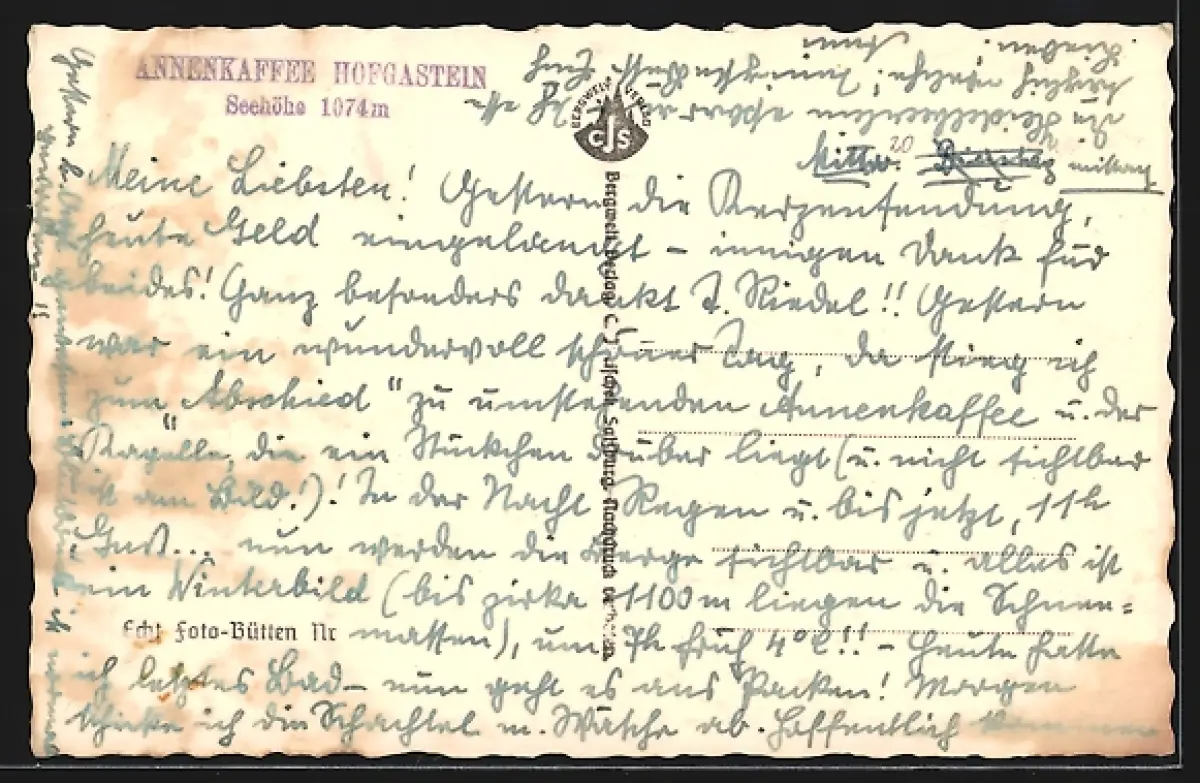 ANNENKAFFEE HOFGASTEIN
Seehöhe 1074m
BERGWELT VERLAG
CJS
Mittw. 20 Dienstag mittag
Meine Liebsten! Gestern die Kerzensendung,
heute Geld eingelangt – innigen Dank für
beides! Ganz besonders dankt T. Riedel!! Gestern
war ein wundervoll schöner Tag, da stieg ich
zum "Abschied" zu umstehenden Annenkaffee u. der
Kapelle, die ein Stückchen drüber liegt (u. nicht sichtbar
ist am Bild!)! In der Nacht Regen u. bis jetzt, 11h
Guß... nun werden die Berge sichtbar u. alles ist
ein Winterbild (bis zirka 1100m liegen die Schnee-
Echt Foto-Bütten Nr
massen), um 7h früh 4° C!! – Heute hatte
ich letztes Bad – nun geht es ans Packen! Morgen
schicke ich die Schachtel m. Wäsche ab. Hoffentlich
Bergwelt Verlag C. J. Salzburg. Nachdruck verboten
Gestern